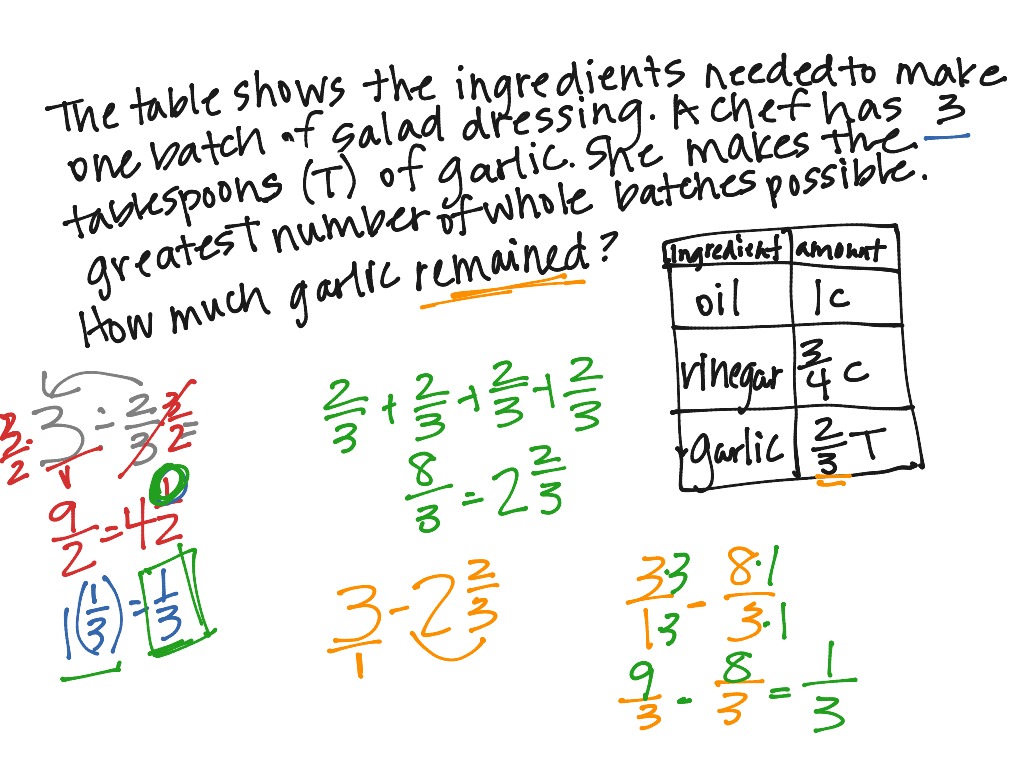 The table shows the ingredients needed to make
one batch of salad dressing. A chef has 3
tablespoons (T) of garlic. She makes the
greatest number of whole batches possible.
How much garlic remained?
ingredient amount
oil 1c
vinegar 3/4 c
garlic 2/3 T
3/2 · 3/1 ÷ 2/3 · 3/2 =
9/2 = 4 1/2
1(1/3) = 1/3
2/3 + 2/3 + 2/3 + 2/3
8/3 = 2 2/3
3/1 - 2 2/3
3·3/1·3 - 8·1/3·1
9/3 - 8/3 = 1/3